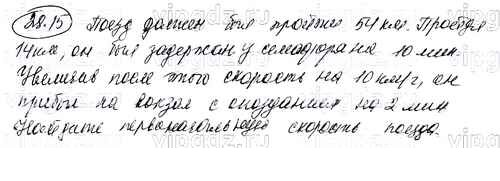 28.15 Поезд должен был пройти 54 км. Пройдя
14 км, он был задержан у семафора на 10 мин.
Увеличив после этого скорость на 10 км/ч, он
прибыл на вокзал с опозданием на 2 мин
Найдите первоначальную скорость поезда.